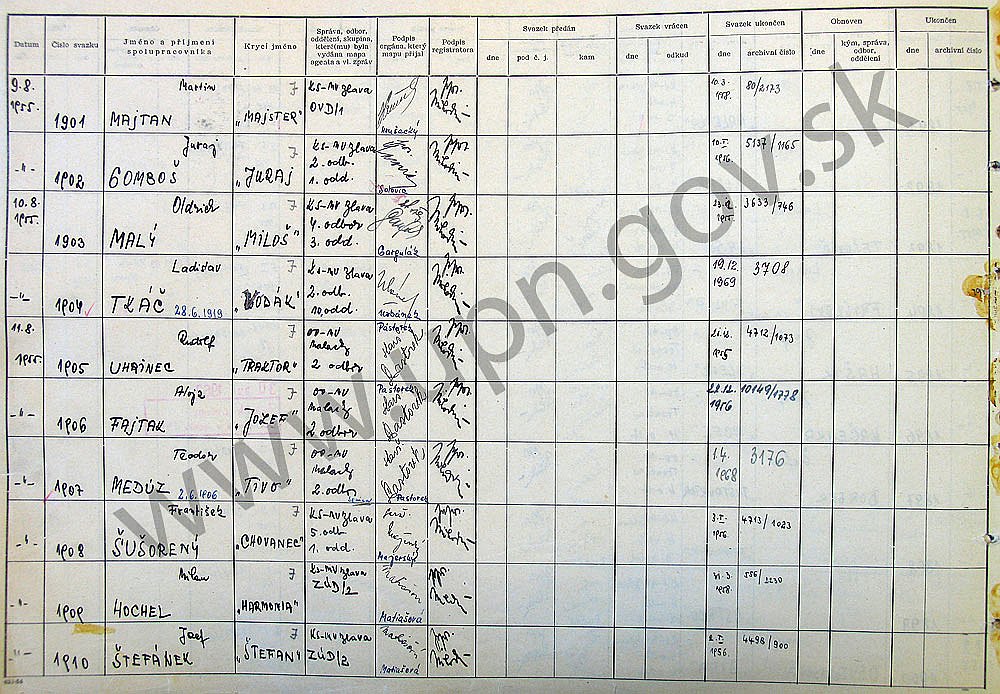 Datum
Číslo svazku
Jméno a příjmení
spolupracovníka
Krycí jméno
Správa, odbor,
oddělení, skupina,
které(mu) byla
vydána mapa
agenta a vl. zpráv
Podpis
orgána, který
mapu přijal
Podpis
registrátora
Svazek předán
dne
pod č. j.
kam
Svazek vrácen
dne
odkud
Svazek ukončen
dne
archivní číslo
Obnoven
dne
kým, správa,
odbor,
oddělení
Ukončen
dne
archivní číslo
9.8.
1955.
1901
Martin
MAJTAN
7
"MAJSTER"
KS-MV Zlava
OVD/1
Hrušecký
10.3.
1958.
80/2173
-"-
1902
Juraj
GOMBOŠ
7
"JURAJ
KS-MV Zlava
2. odb.
1. odd.
10.I.
1956.
5137/1165
10.8.
1955.
1903
Oldrich
MALÝ
7
"MILOŠ"
KS-MV Zlava
4. odbor
3. odd.
Gargulák
1955.
3633/746
-"-
1904
Ladislav
TKÁČ 28.6.1919
7
"VODÁK"
KS-MV Zlava
2. odb.
10. odd.
Urbánek
19.12.
1969
3708
11.8.
1955.
1905
Rudolf
UHRINEC
7
"TRAKTOR"
OO-MV
Malacky
2 odbor
Pástorek
1955
4712/1073
-"-
1906
Alojz
FAJTAK
7
"JOZEF"
OO-MV
Malacky
2 odbor
Pástorek
22.12.
1956
10149/1778
-"-
1907
Teodor
MEDÚZ 2.6.1906
7
"TIVO"
OO-MV
Malacky
2. odbor
Pastorek
1.4.
1968
3176
-"-
1908
František
ŠUŠORENY
7
"CHOVANEC"
KS-MV Zlava
5. odb.
1. odd.
Majerský
3.I.
1956.
4713/1023
-"-
1909
Milan
HOCHEL
7
"HARMONIA"
KS-MV Zlava
ZÚD/2
Matiašová
31.3.
1958.
556/2230
-"-
1910
Jozef
ŠTEFÁNEK
7
"ŠTEFAN"
KS-MV Zlava
ZÚD/2
Matiašová
2.I.
1956.
4498/900
www.upn.gov.sk